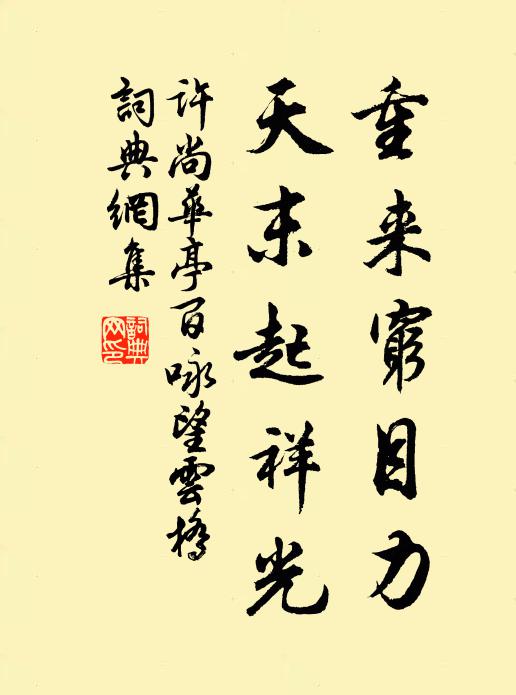 重来窮目力
天末起祥光
許尚華亭百咏望雲橋
詞典網集
詞典
网印